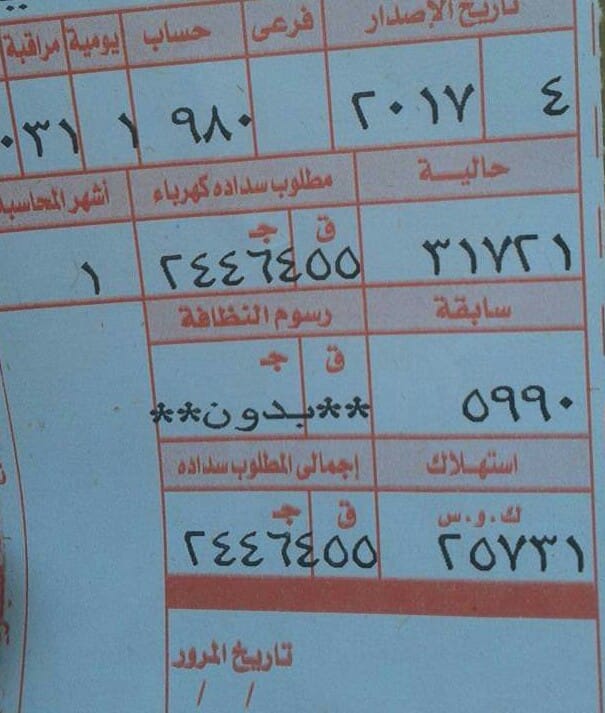 تاريخ الإصدار فرعى حساب يومية مراقبة
٤ ٢٠١٧ ٩٨٠ ١ ٠٣١
حالية مطلوب سداده كهرباء أشهر المحاسبة
ق جـ
٣١٧٢١ ٢٤٤٦٤٥٥ ١
سابقة رسوم النظافة
ق جـ
٥٩٩٠ **بدون**
استهلاك إجمالى المطلوب سداده
ك.و.س ق جـ
٢٥٧٣١ ٢٤٤٦٤٥٥
تاريخ المرور
/ /